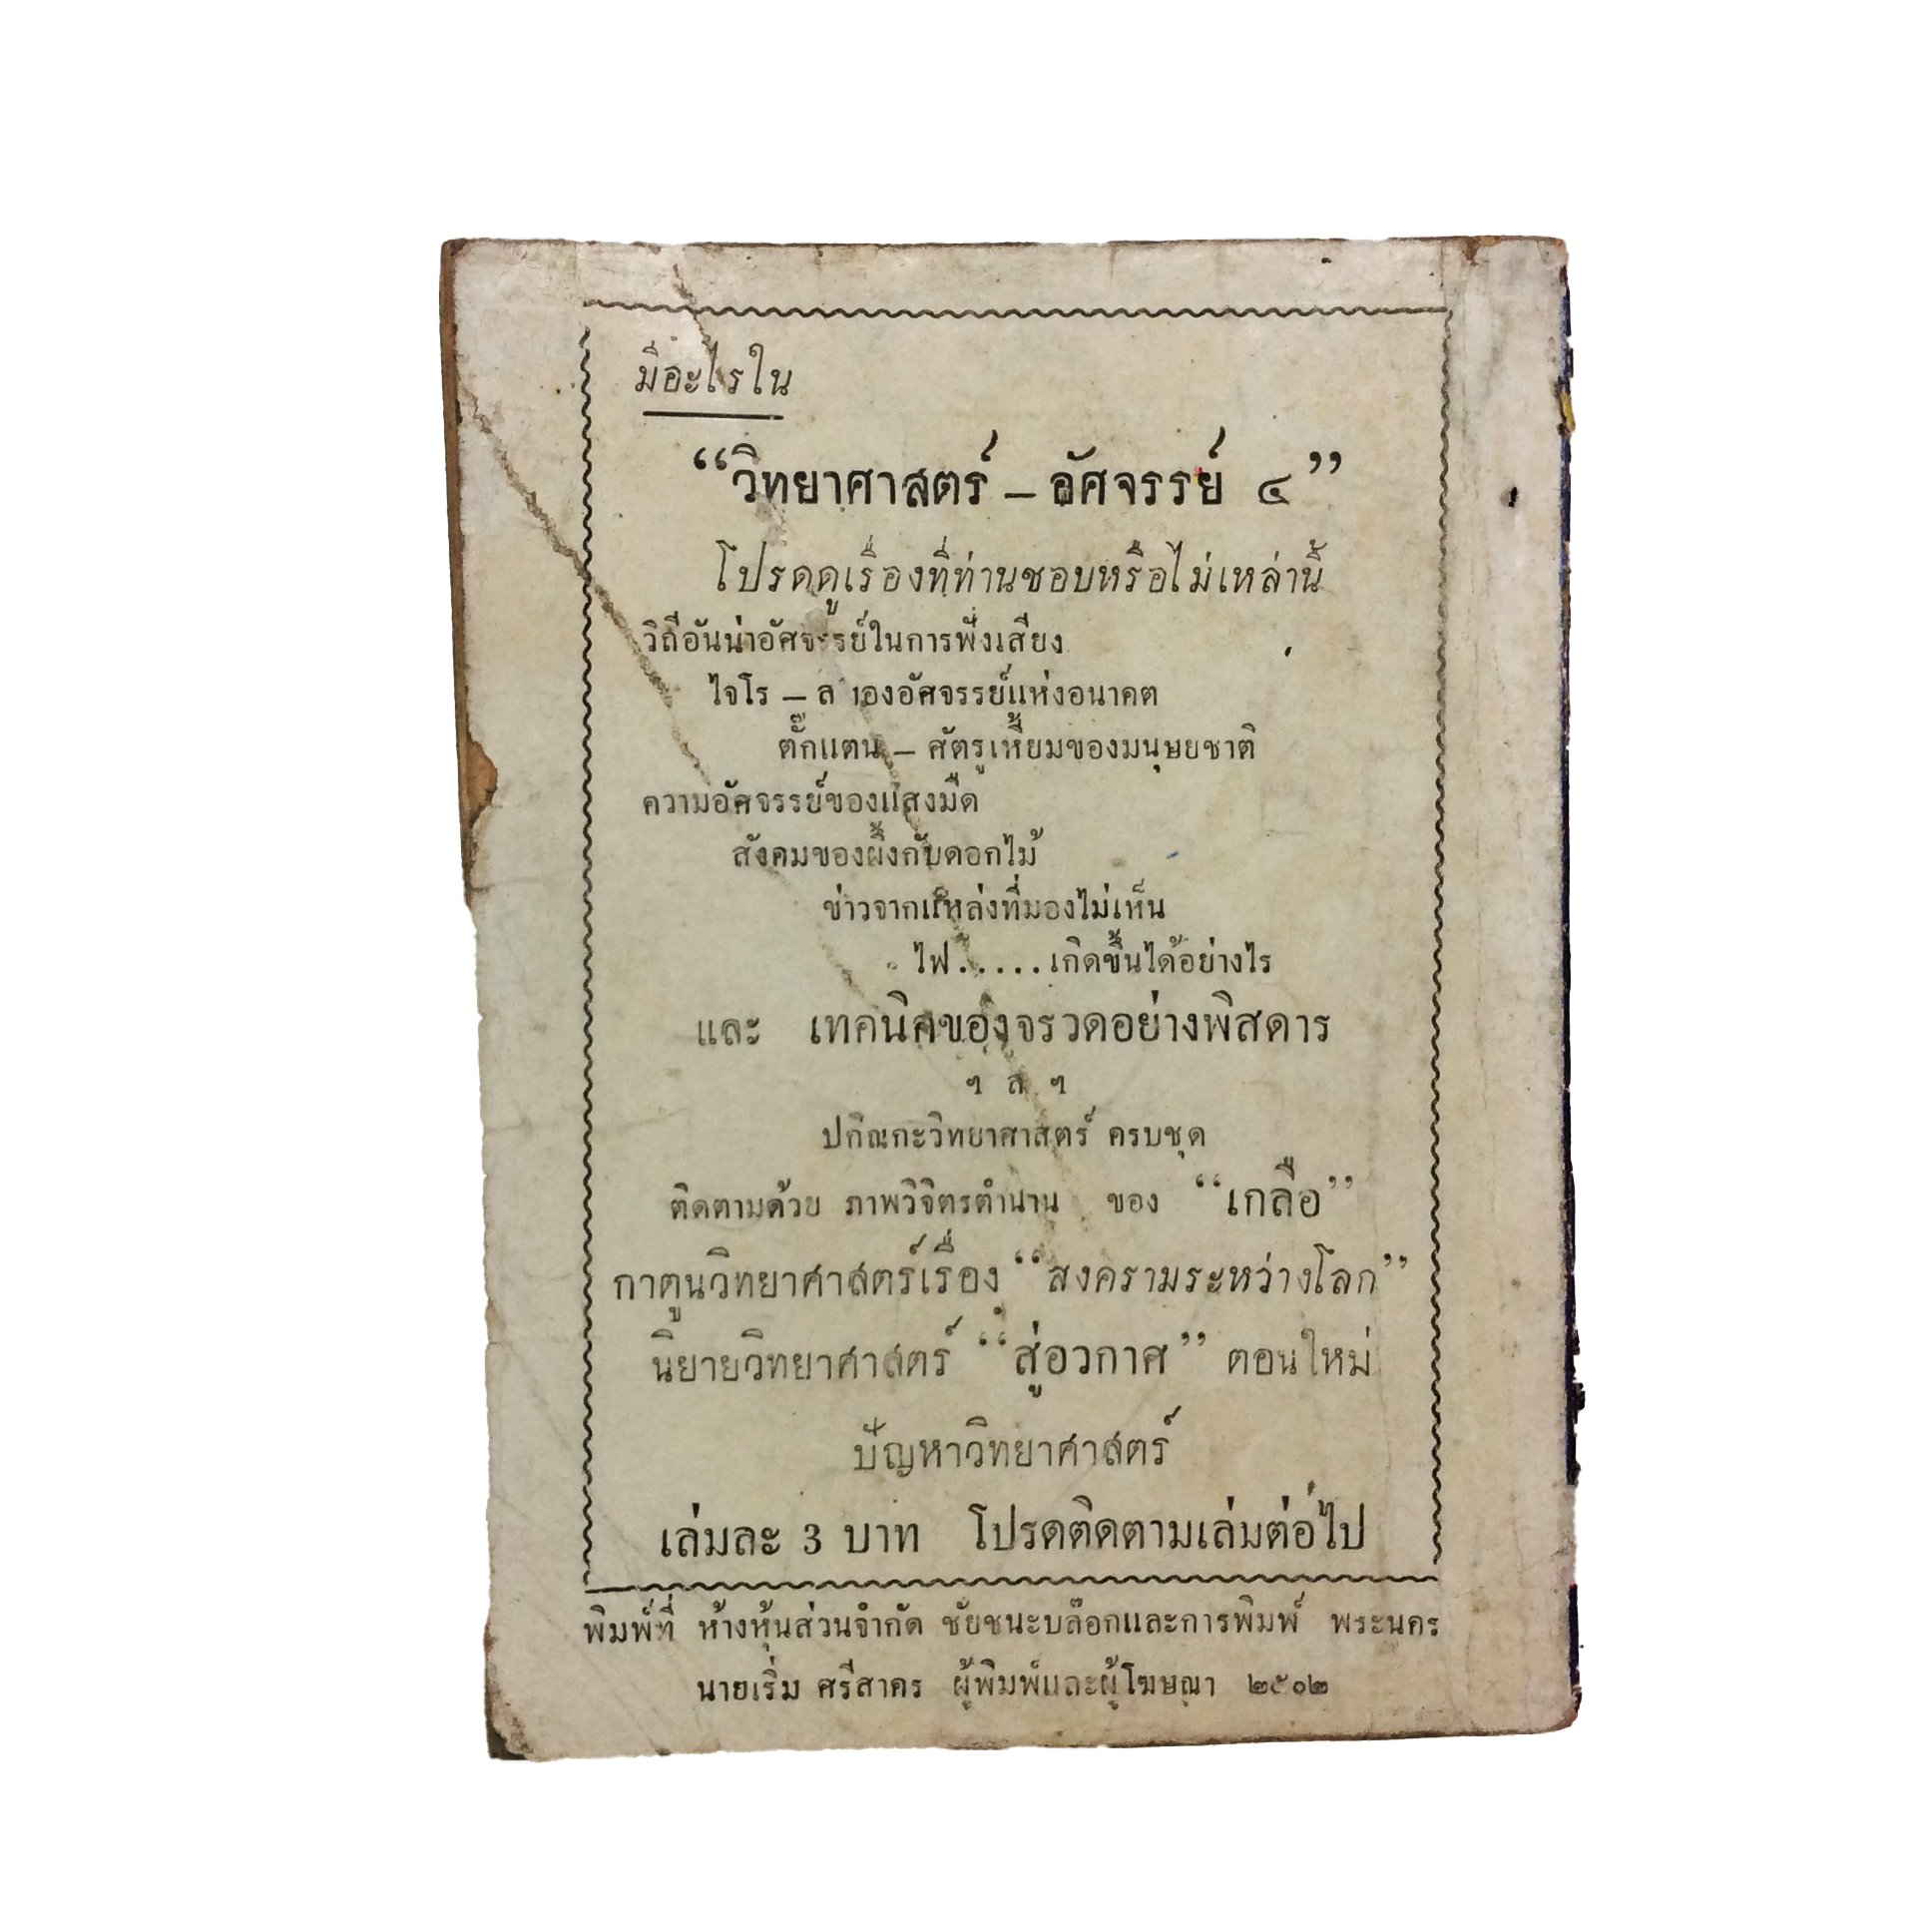 มีอะไรใน
“วิทยาศาสตร์ – อัศจรรย์ ๔”
โปรดดูเรื่องที่ท่านชอบหรือไม่เหล่านี้
วิถีอันน่าอัศจรรย์ในการฟังเสียง
ไจโร – อัศจรรย์แห่งอนาคต
ตั๊กแตน – ศัตรูเหี้ยมของมนุษยชาติ
ความอัศจรรย์ของแสงมืด
สังคมของผึ้งกับดอกไม้
ข่าวจากแหล่งที่มองไม่เห็น
ไฟ.....เกิดขึ้นได้อย่างไร
และ เทคนิคของจรวดอย่างพิสดาร
ฯ ล ฯ
ปกิณกะวิทยาศาสตร์ ครบชุด
ติดตามด้วย ภาพวิจิตรตำนาน ของ “เกลือ”
กาตูนวิทยาศาสตร์เรื่อง “สงครามระหว่างโลก”
นิยายวิทยาศาสตร์ “สู่อวกาศ” ตอนใหม่
ปัญหาวิทยาศาสตร์
เล่มละ 3 บาท โปรดติดตามเล่มต่อไป
พิมพ์ที่ ห้างหุ้นส่วนจำกัด ชัยชนะบล๊อกและการพิมพ์ พระนคร
นายเริ่ม ศรีสาคร ผู้พิมพ์และผู้โฆษณา ๒๕๐๒